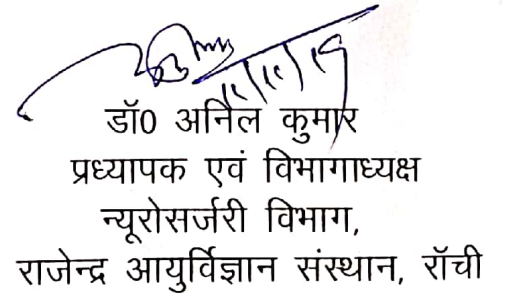 11/11/19
डॉ0 अनिल कुमार
प्रध्यापक एवं विभागाध्यक्ष
न्यूरोसर्जरी विभाग,
राजेन्द्र आयुर्विज्ञान संस्थान, राॅंची